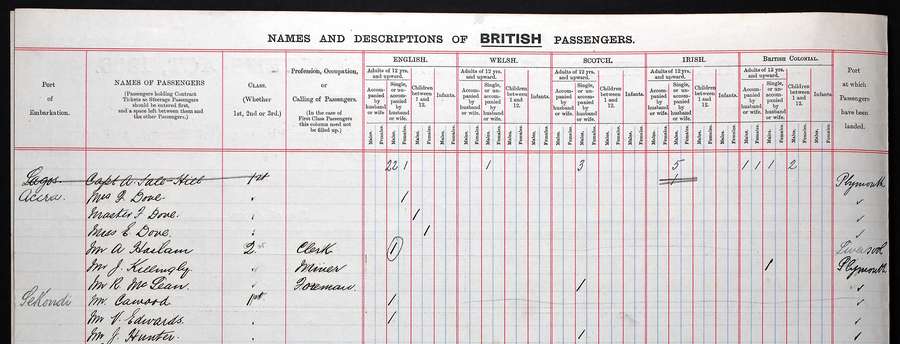 NAMES AND DESCRIPTIONS OF BRITISH PASSENGERS.
Port of Embarkation.
NAMES OF PASSENGERS
(Passengers holding Contract Tickets as Steerage Passengers should be entered first, and a space left between them and the other Passengers.)
CLASS.
(Whether 1st, 2nd or 3rd.)
Profession, Occupation, or Calling of Passengers.
(In the case of First Class Passengers this column need not be filled up.)
ENGLISH. WELSH. SCOTCH. IRISH. BRITISH COLONIAL.
Adults of 12 yrs. and upward. Adults of 12 yrs. and upward. Adults of 12 yrs. and upward. Adults of 12 yrs. and upward. Adults of 12 yrs. and upward.
Accompanied by husband or wife. Single, or unaccompanied by husband or wife. Children between 1 and 12. Infants.
Males. Females. Males. Females. Males. Females. Males. Females.
Port at which Passengers have been landed.
22 1 1 3 5 1 1 1 2
Lagos. Capt A. Tate-Hill 1st 1 Plymouth
Accra. Mrs F. Dove. " 1 "
Master F Dove. " 1 "
Miss E Dove. " 1 "
Mr A Haslam 2 Clerk 1 Liverpool
Mr J. Killingly " Miner 1 Plymouth
Mr R McLean. " Foreman. 1 "
Sekondi Mr. Cawood 1st 1 "
Mr V. Edwards. " 1 "
Mr J. Hunter " 1 "